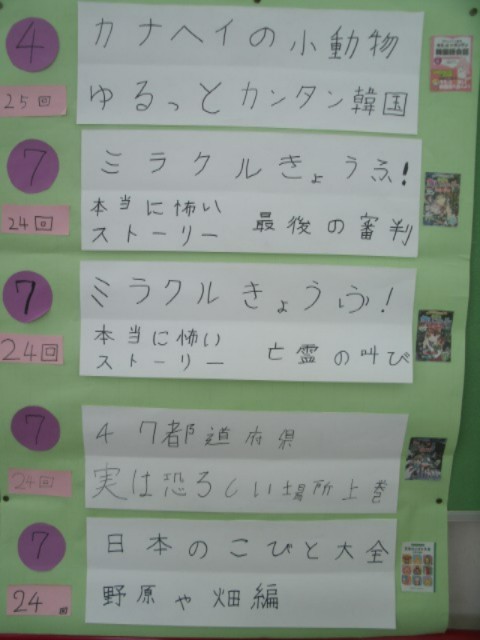 4
カナヘイの小動物
25回
ゆるっとカンタン韓国
7
ミラクルきょうふ!
24回
本当に怖い
ストーリー 最後の審判
7
ミラクルきょうふ!
24回
本当に怖い
ストーリー 亡霊の叫び
7
47都道府県
24回
実は恐ろしい場所上巻
7
日本のこびと大全
24回
野原や畑編